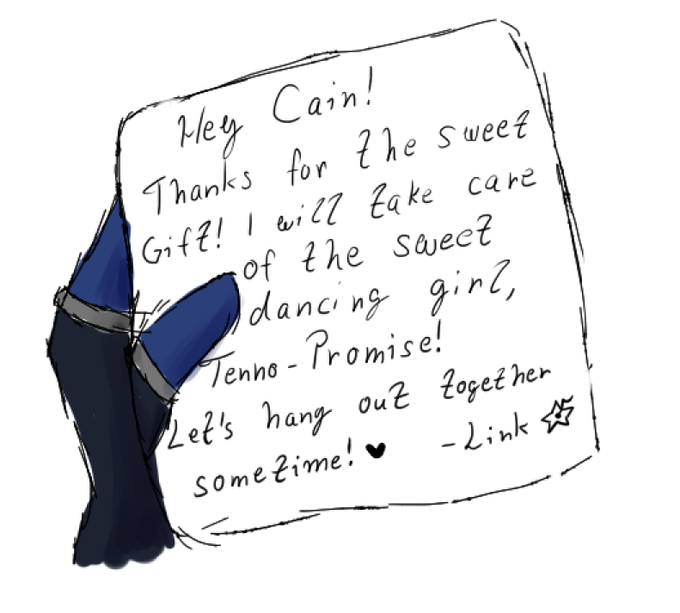 Hey Cain!
Thanks for the sweet
Gift! I will take care
of the sweet
dancing girl,
Tenno-Promise!
Let's hang out together
sometime! ♥ -Link